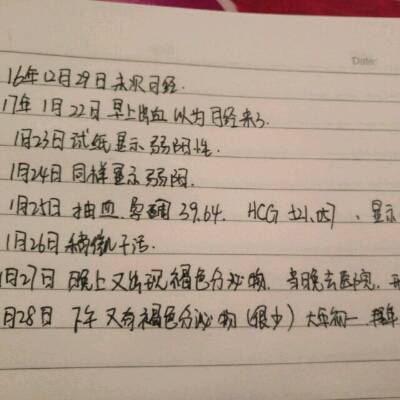 Date:
16年12月29日末次月经.
17年1月22日早上出血以为月经来了.
1月23日试纸显示弱阳性.
1月24日同样显示弱阳.
1月25日抽血.孕酮39.64. HCG 、显示
1月26日稍微干活.
月27日 晚上又出现褐色分泌物.当晚去医院.
月28日 下午又有褐色分泌物(很少)大年初一.